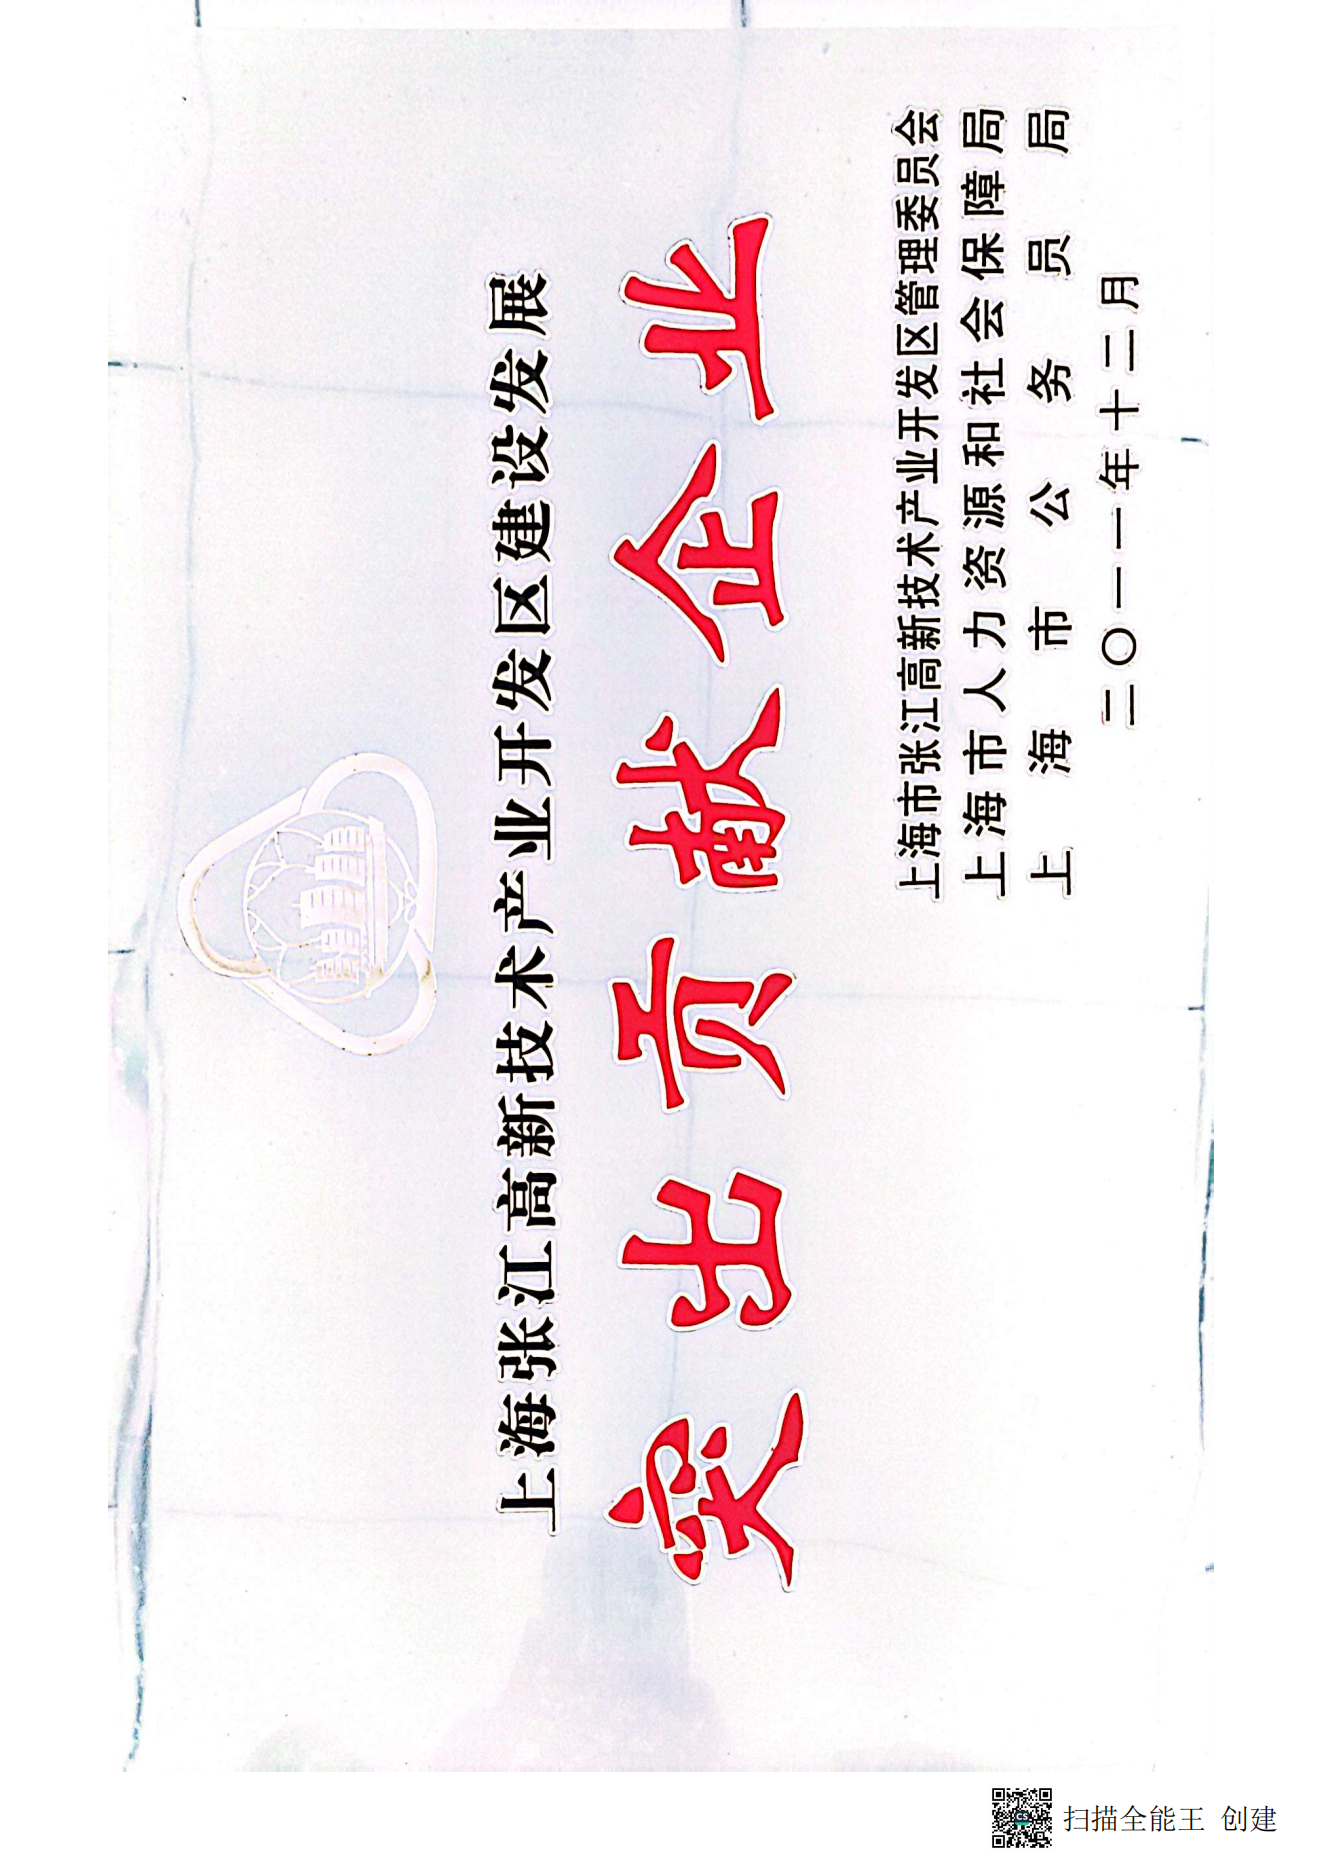 上海张江高新技术产业开发区建设发展
突出贡献企业
上海市张江高新技术产业开发区管理委员会
上海市人力资源和社会保障局
上海市公务员局
二〇一一年十二月
扫描全能王 创建